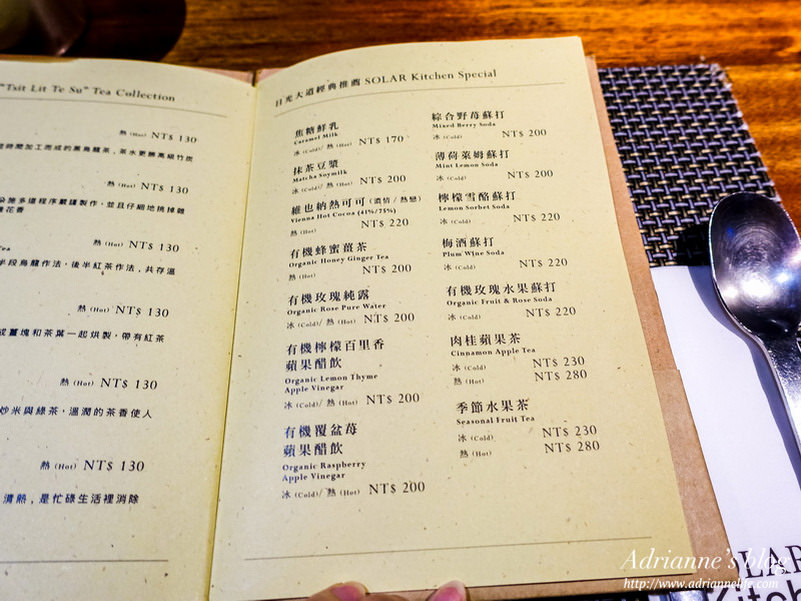 "Tsit Lit Te Su" Tea Collection
熱 (Hot) NT$ 130
時間加工而成的黑烏龍茶，茶水更勝萬級竹炭
熱 (Hot) NT$ 130
施多道程序嚴謹製作，並且仔細地挑掉雜
花香
熱 (Hot) NT$ 130
Tea
半段烏龍作法，後半紅茶作法，共存溫
熱 (Hot) NT$ 130
薑塊和茶葉一起烘製，帶有紅茶
熱 (Hot) NT$ 130
炒米與綠茶，溫潤的茶香使人
熱 (Hot) NT$ 130
清熱，是忙碌生活裡消除
日光大道經典推薦 SOLAR Kitchen Special
焦糖鮮乳
Caramel Milk
冰 (Cold) / 熱 (Hot) NT$ 170
抹茶豆漿
Matcha Soymilk
冰 (Cold) / 熱 (Hot) NT$ 200
維也納熱可可 (濃情 / 熱戀)
Vienna Hot Cocoa (41%/75%)
熱 (Hot) NT$ 220
有機蜂蜜薑茶
Organic Honey Ginger Tea
熱 (Hot) NT$ 200
有機玫瑰純露
Organic Rose Pure Water
冰 (Cold) / 熱 (Hot) NT$ 200
有機檸檬百里香
蘋果醋飲
Organic Lemon Thyme
Apple Vinegar
冰 (Cold) / 熱 (Hot) NT$ 200
有機覆盆苺
蘋果醋飲
Organic Raspberry
Apple Vinegar
冰 (Cold) / 熱 (Hot) NT$ 200
綜合野苺蘇打
Mixed Berry Soda
冰 (Cold) NT$ 200
薄荷萊姆蘇打
Mint Lemon Soda
冰 (Cold) NT$ 200
檸檬雪酪蘇打
Lemon Sorbet Soda
冰 (Cold) NT$ 220
梅酒蘇打
Plum Wine Soda
冰 (Cold) NT$ 220
有機玫瑰水果蘇打
Organic Fruit & Rose Soda
冰 (Cold) NT$ 220
肉桂蘋果茶
Cinnamon Apple Tea
冰 (Cold) NT$ 230
熱 (Hot) NT$ 280
季節水果茶
Seasonal Fruit Tea
冰 (Cold) NT$ 230
熱 (Hot) NT$ 280
Adrianne's blog
http://www.adriannelife.com